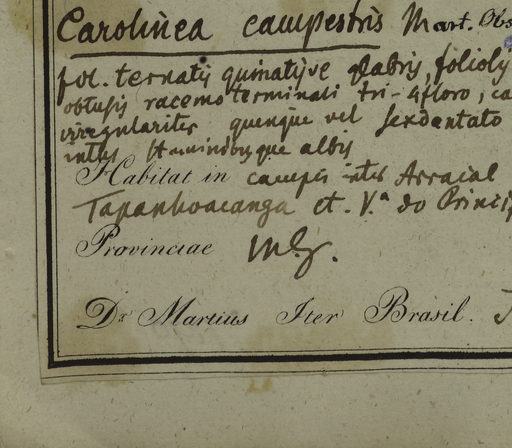 Carolinea campestris Mart. Obs
fol. ternatis quinatisve glabris, foliolis
obtusis racemo terminali tri-4floro, ca
irregulariter quinque vel sexdentato
intus staminibusque albis
Habitat in campis inter Arraial
Tapanhoacanga et V.ª do Princip
Provinciae
Dr Martius Iter Brasil.